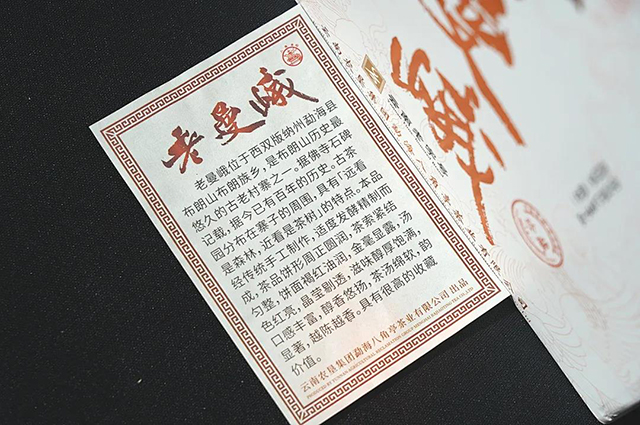 老曼峨
老曼峨位于西双版纳州勐海县
布朗山布朗族乡，是布朗山历史最
悠久的古老村寨之一。据佛寺石碑
记载，据今已有百年的历史。古茶
园分布在寨子的周围，具有「远看
是森林，近看是茶树」的特点。本品
经传统手工制作，适度发酵精制而
成，茶品饼形周正圆润，茶索紧结
匀整，饼面褐红油润，金毫显露，汤
色红亮，晶莹剔透，滋味醇厚饱满，
口感丰富，醇香悠扬，茶汤绵软，韵
显著，越陈越香。具有很高的收藏
价值。
云南农垦集团勐海八角亭茶业有限公司 出品